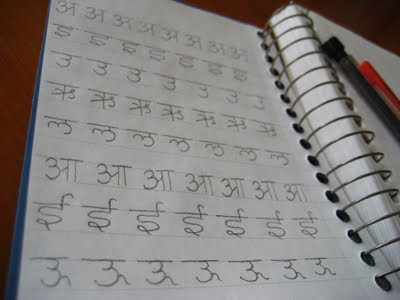 अ अ अ अ अ अ अ अ
इ इ इ इ इ इ इ
उ उ उ उ उ उ उ
ऋ ऋ ऋ ऋ ऋ ऋ ऋ
ऌ ऌ ऌ ऌ ऌ ऌ ऌ
आ आ आ आ आ आ आ
ई ई ई ई ई ई ई
ऊ ऊ ऊ ऊ ऊ ऊ ऊ